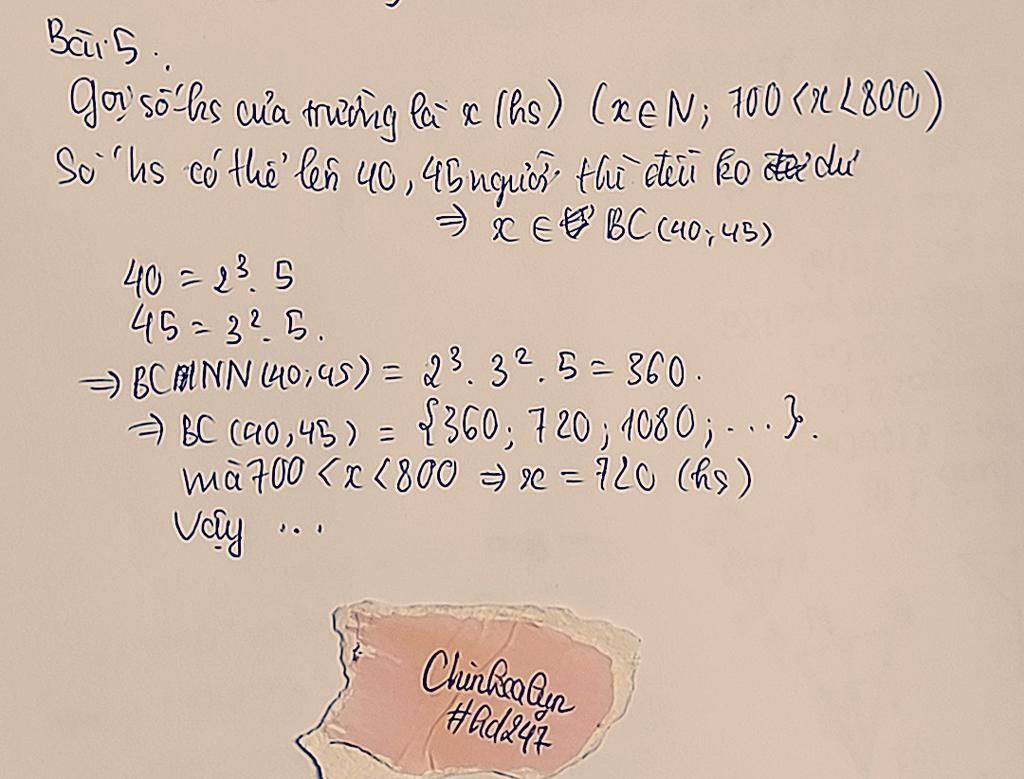 Bài 5.
Gọi số hs của trường là x (hs) (x ∈ N; 700 < x < 800)
Số hs có thể lên 40, 45 người thì đều ko dư
⇒ x ∈ BC (40; 45)
40 = 2³. 5
45 = 3². 5.
⇒ BCNN (40; 45) = 2³. 3². 5 = 360.
⇒ BC (40, 45) = {360; 720; 1080; ...}.
mà 700 < x < 800 ⇒ x = 720 (hs)
Vậy ...
#Gd247